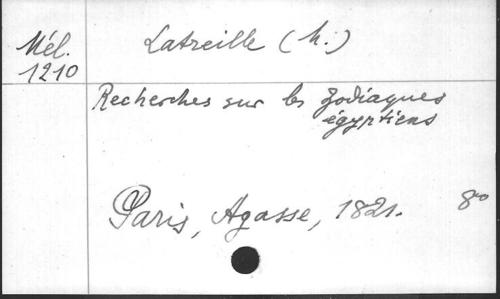 Mél.
1210
Latreille (M.)
Recherches sur les Zodiaques
égyptiens
Paris, Agasse, 1821. 8vo